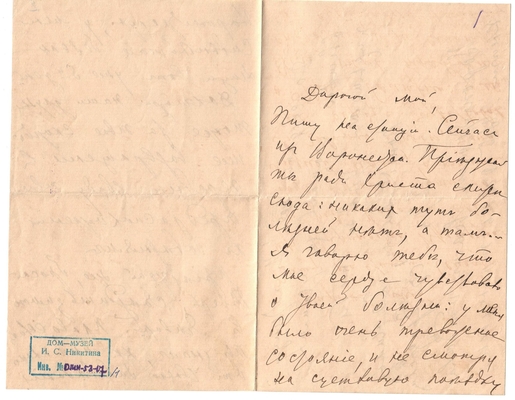 1
Дорогой мой,
Пишу на станціи. Сейчасъ
Воронежа. Пріѣзжай
ты ради Христа скорѣй
сюда: никакихъ тутъ бо-
лѣзней нѣтъ, а тамъ...
Я говорю тебѣ, что
мое сердце чувствовало
о твоей болѣзни: у меня
было очень тревожное
состояніе, и не смотря
на суетливую поѣздку
ДОМ—МУЗЕЙ
И. С. Никитина
Инв. №